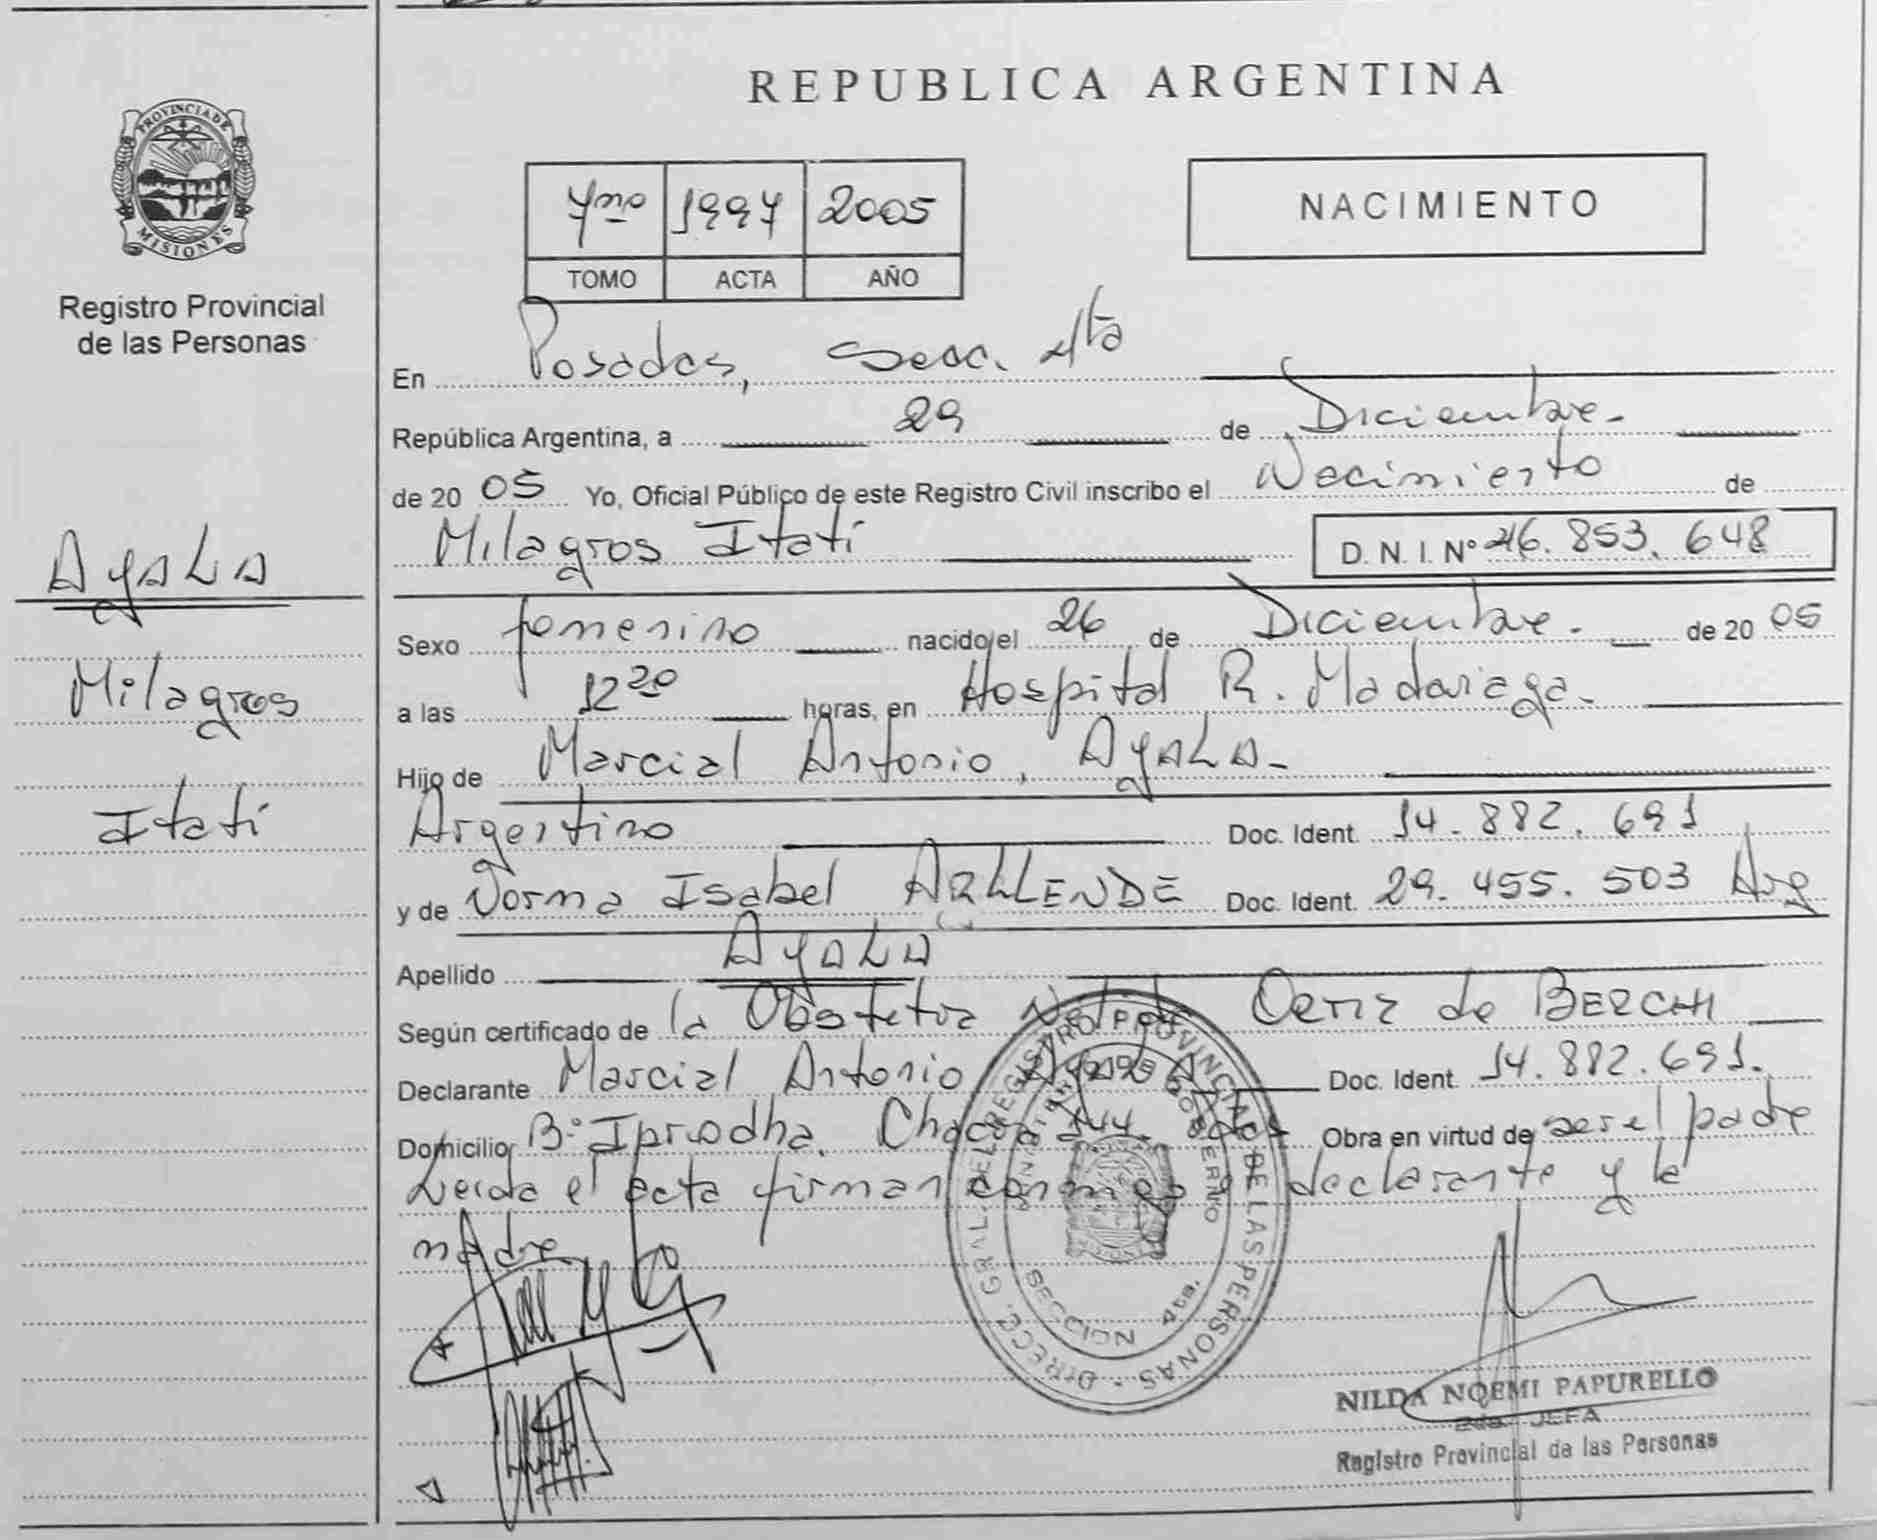 PROVINCIA DE
MISIONES
Registro Provincial
de las Personas
Ayala
Milagros
Itatí
REPUBLICA ARGENTINA
7mo 1997 2005
TOMO ACTA AÑO
NACIMIENTO
En Posadas, Secc. 4ta
República Argentina, a 29 de Diciembre.
de 20 05 Yo, Oficial Público de este Registro Civil inscribo el Nacimiento de
Milagros Itatí D. N. I. Nº 46. 853. 648
Sexo femenino nacido el 26 de Diciembre. de 20 05
a las 12 20 horas, en Hospital R. Madariaga.
Hijo de Marcial Antonio, Ayala.
Argentino Doc. Ident. 14. 882. 691
y de Norma Isabel Doc. Ident. 29. 455. 503 Arg
Apellido Ayala
Según certificado de la Obstetra de BERCHI
Declarante Marcial Antonio Ayala Doc. Ident. 14.882.691.
Domicilio Bº Iprodha. Obra en virtud de ser el padre
Leida el acta firman declarante y la
madre
DIRECC. GRAL. DEL REGISTRO PROVINCIAL DE LAS PERSONAS
SECCION 4ta.
NILDA NOEMI PAPURELLO
2da. JEFA
Registro Provincial de las Personas